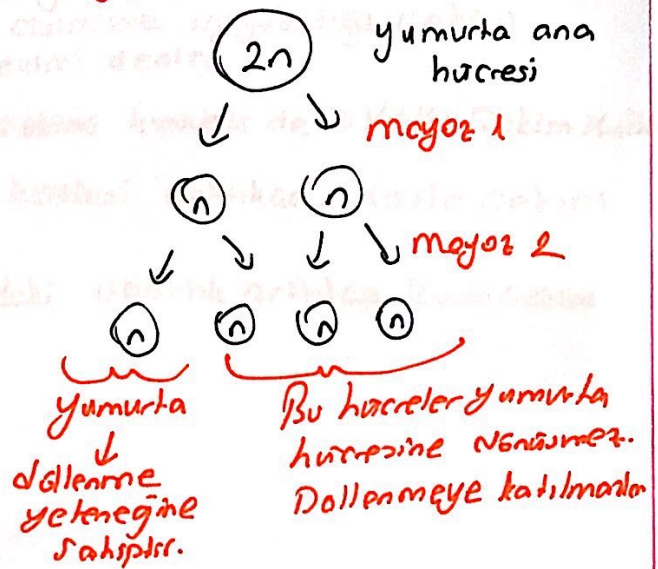 2n
yumurta ana
hücresi
mayoz 1
n
n
mayoz 2
n
n
n
n
Yumurta
döllenme
yeteneğine
sahiptir.
Bu hücreler yumurta
hücresine dönüşmez.
Döllenmeye katılmazlar